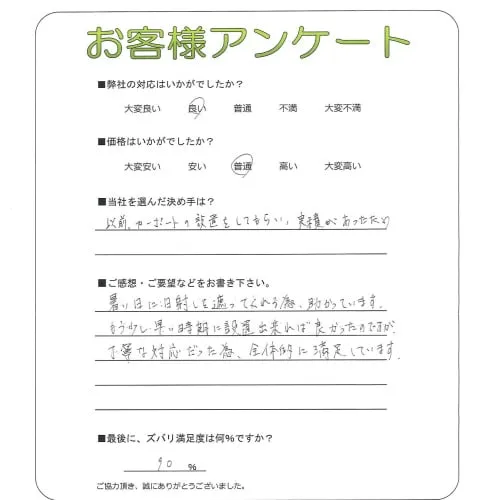 お客様アンケート
■弊社の対応はいかがでしたか？
大変良い 良い 普通 不満 大変不満
■価格はいかがでしたか？
大変安い 安い 普通 高い 大変高い
■当社を選んだ決め手は？
以前、カーポートの設置をしてもらい、実績があったため
■ご感想・ご要望などをお書き下さい。
暑い日に日射しを遮ってくれる為、助かっています。
もう少し早い時期に設置出来れば良かったのですが
丁寧な対応だった為、全体的に満足しています。
■最後に、ズバリ満足度は何％ですか？
90 %
ご協力頂き、誠にありがとうございました。